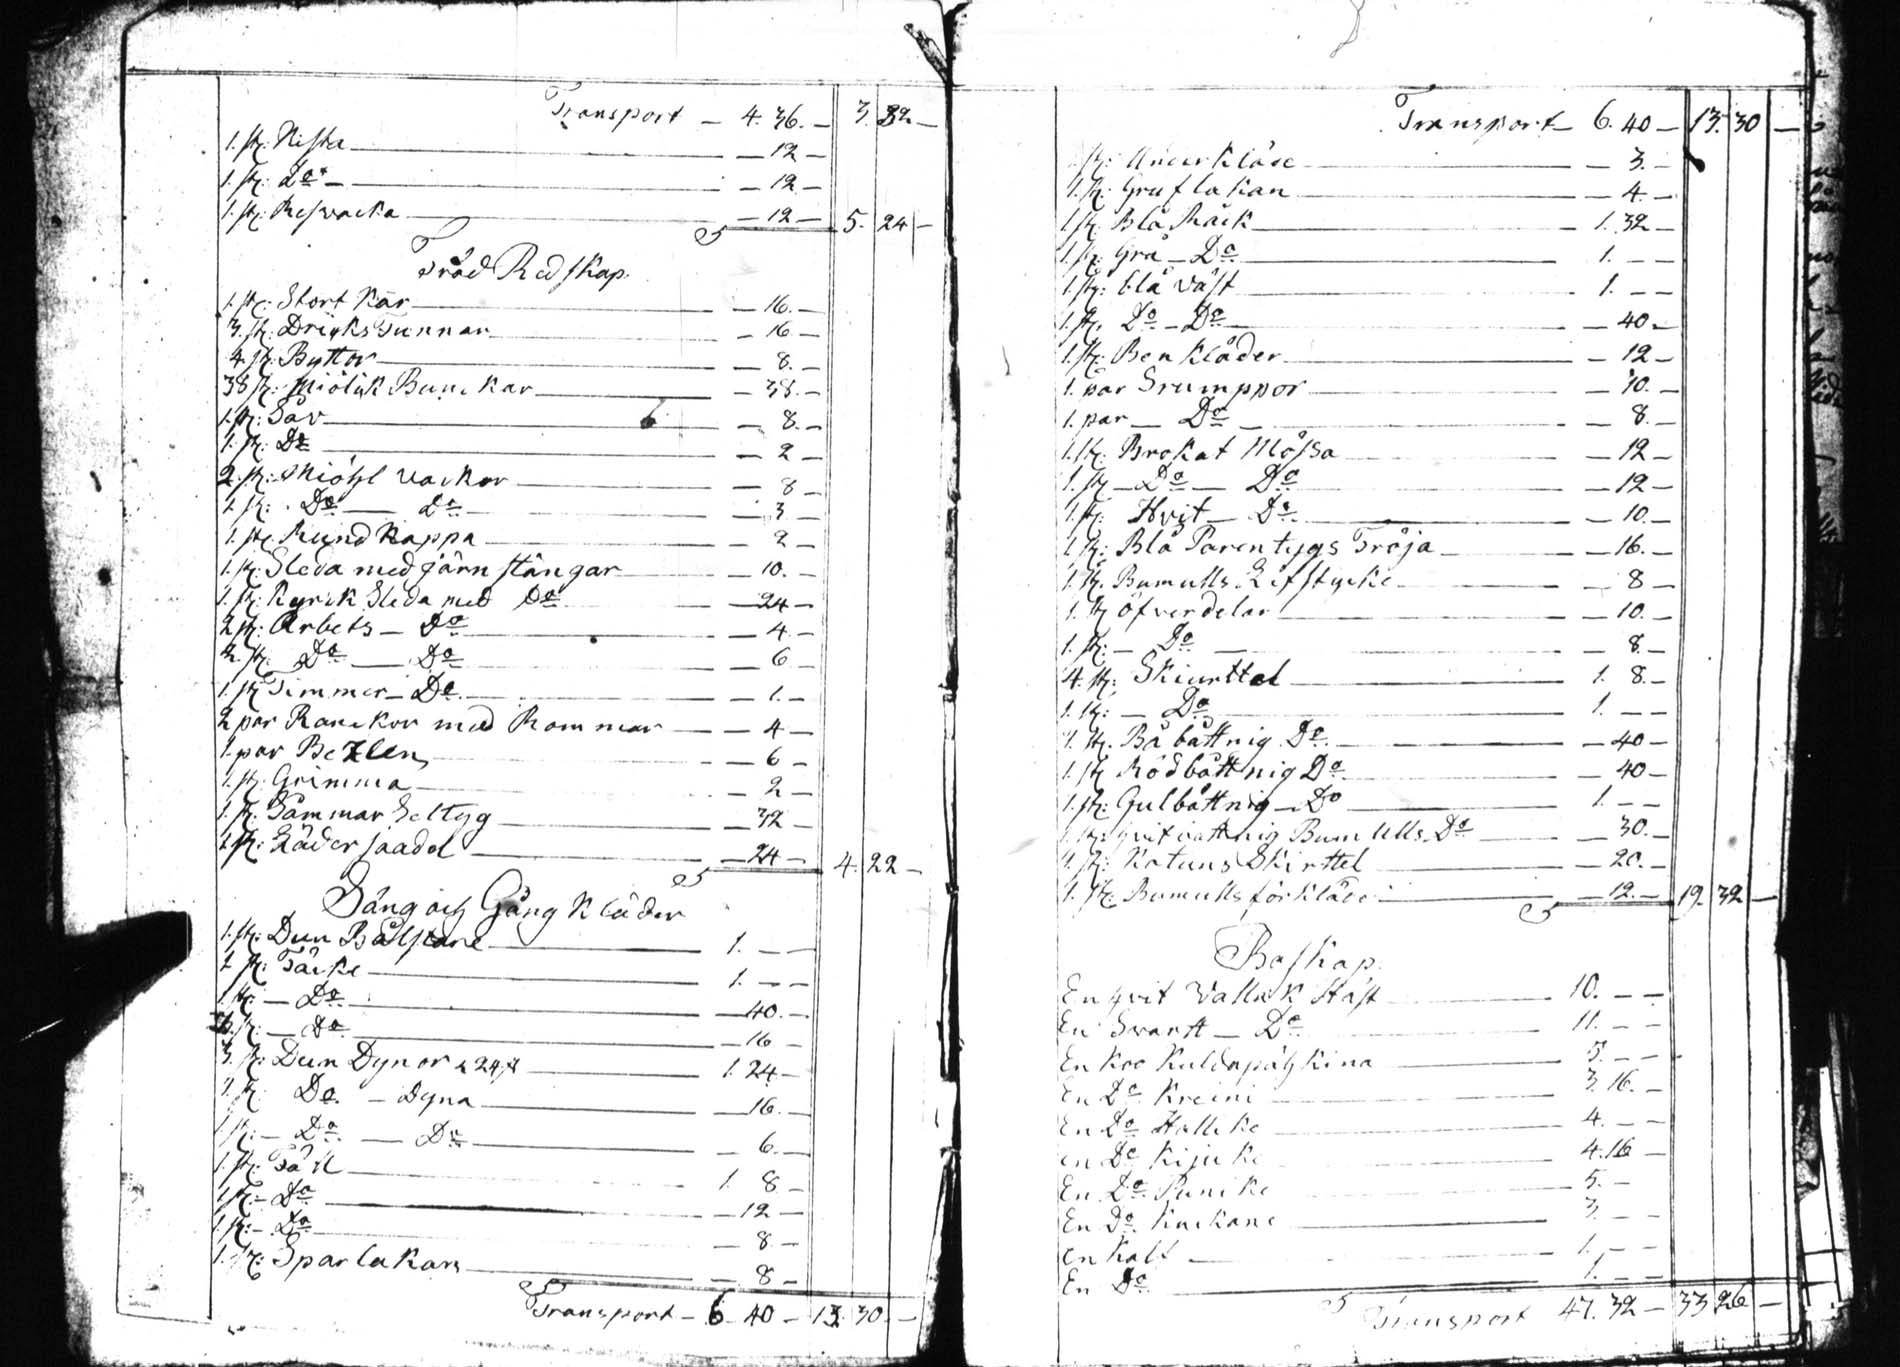 Transport — 4. 36. — 3. 32 —
1. st: Kista — 12 —
1. st: Do — 12 —
1. st: Resvacka — 12 — 5. 24 —
Träd Redskap.
1. st: Stort Kar — 16. —
3. st: Dricks Tunnar — 16 —
4. st: Byttor — 8. —
38 st: Miölk Bunckar — 38. —
1. st: Såv — 8. —
1. st: Do — 2 —
2. st: Miöhl Vackor — 8 —
1. st: Do — Do — 3 —
1. st: Rund Kappa — 2 —
1. st: Sleda med järn stängar — 10. —
1. st: Kyrck Sleda med Do — 24 —
2 st: Arbets — Do — 4 —
2. st: Do — Do — 6 —
1. st: Timmer — Do — 1. —
2 par Ranckor med Rommar — 4 —
1. par Bezlen — 6 —
1. st: Grimma — 2 —
1. st: Sommar Seltyg — 32 —
1. st: Läder saadel — 24 — 4. 22 —
Säng och Gång Kläder
1. st: Dun Bålstare 1. — —
1. st: Täcke 1. — —
1. st: — Do — 40. —
1. st: — Do — 16 —
3. st: Dun Dynor a 24 s 1. 24 —
1. st: Do — Dyna — 16. —
1. st: — Do — Do — 6. —
1. st: Fäll 1. 8 —
1. st: — Do — 12 —
1. st: — Do — 8. —
1. st: Sparlakan — 8 —
Transport — 6. 40 — 13. 30. —
Transport — 6. 40 — 13. 30 —
1. st: Underkläde — 3. —
1. st: Gruflakan — 4. —
1. st: Blå Råck 1. 32 —
1. st: Grå — Do 1. — —
1. st: blå väst 1. — —
1. st. Do — Do — 40. —
1. st: Benkläder — 12 —
1. par Srumppor — 10. —
1. par — Do — 8. —
1. st: Brokat Mössa — 12 —
1. st — Do — Do — 12 —
1. st: Hvit — Do — 10. —
1. st: Blå Parentygs Tröja — 16. —
1. st. Bumulls Lifstycke — 8 —
1. st öfverdelar — 10. —
1. st: — Do — 8. —
4. st: Skiurttel 1. 8. —
1. st: — Do 1. — —
1. st. Båbåttnig Do — 40 —
1. st Rödbåttnig Do — 40 —
1. st: Gulbåttnig — Do 1. — —
1. st: Hvitbåttnig Bumulls Do — 30. —
1. st: Katuns Skirttel — 20. —
1. st: Bumulls förkläde — 12. — 19. 32 —
Boskap.
En hvit Vallack Häst 10. — —
En Svartt — Do 11. — —
En Koo 5. — —
En Do Kreini 3. 16. —
En Do Hallike 4. — —
En Do Kijuke 4. 16 —
En Do Punike 5. —
En Do 3. — —
En Kalf 1. — —
En Do 1. — —
Transport 47. 32 — 33 26 —